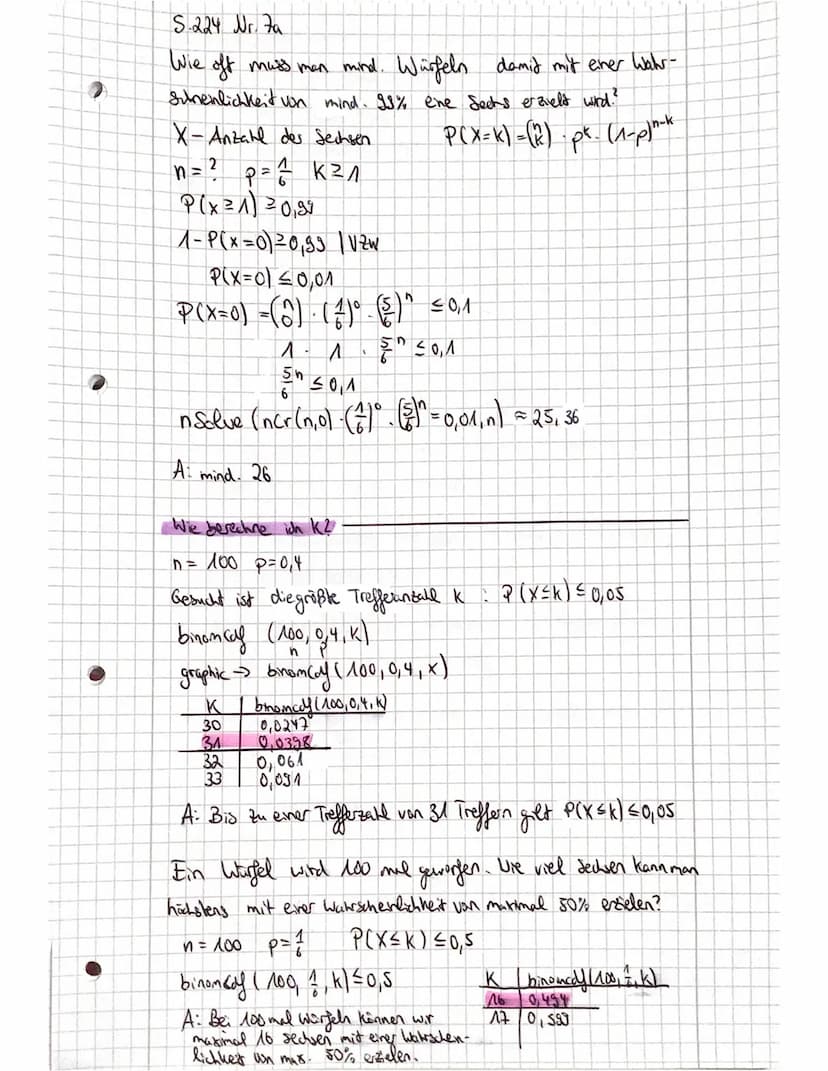 S.224 Nr. 7a
Wie oft muss man mind. Würfeln damit mit einer Wahr-
scheinlichkeit von mind. 99% eine Sechs erzielt wird?
X - Anzahl der Sechsen P(X=k) = (n k) · p^k · (1-p)^n-k
n = ? p = 1/6 k ≥ 1
P(x ≥ 1) ≥ 0,99
1 - P(x = 0) ≥ 0,99 | VZW
P(X=0) ≤ 0,01
P(X=0) = (n 0) · (1/6)^0 · (5/6)^n ≤ 0,1
1 · 1 · 5/6^n ≤ 0,1
5/6^n ≤ 0,1
nSolve (ncr(n,0) · (1/6)^0 · (5/6)^n = 0,01, n) ≈ 25,36
A: mind. 26
Wie berechne ich K?
n = 100 p = 0,4
Gesucht ist die größte Trefferanzahl k : P(X ≤ k) ≤ 0,05
binomcdf (100, 0,4, k)
n p
graphic → binomcdf (100, 0,4, x)
K binomcdf (100, 0,4, k)
30 0,0247
31 0,0398
32 0,061
33 0,091
A: Bis zu einer Trefferzahl von 31 Treffern gilt P(X ≤ k) ≤ 0,05
Ein Würfel wird 100 mal geworfen. Wie viel Sechsen kann man
höchstens mit einer Wahrscheinlichkeit von maximal 50% erzielen?
n = 100 p = 1/6 P(X ≤ k) ≤ 0,5
binomcdf (100, 1/6, k) ≤ 0,5
K binomcdf (100, 1/6, k)
16 0,494
17 0,599
A: Bei 100 mal würfeln können wir
maximal 16 Sechsen mit einer Wahrschein-
lichkeit von max. 50% erzielen.